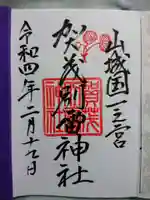 山城国一之宮
賀茂別雷神社
令和四年二月十七日